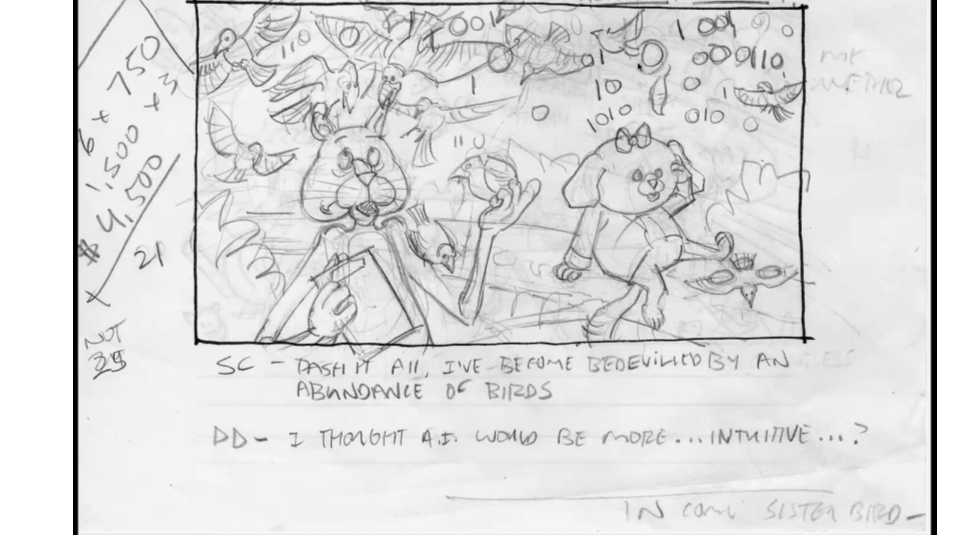 6 + 750
1,500 + 3
$4,500
21
NOT
110
001
1 001
01
000110
10
0
1
1
0
1010
010
0
110
SC - DASH IT All, I'VE BECOME BEDEVILLED BY AN
ABUNDANCE OF BIRDS
DD - I THOUGHT A.I. WOULD BE MORE...INTUITIVE...?
IN COME SISTER BIRD-